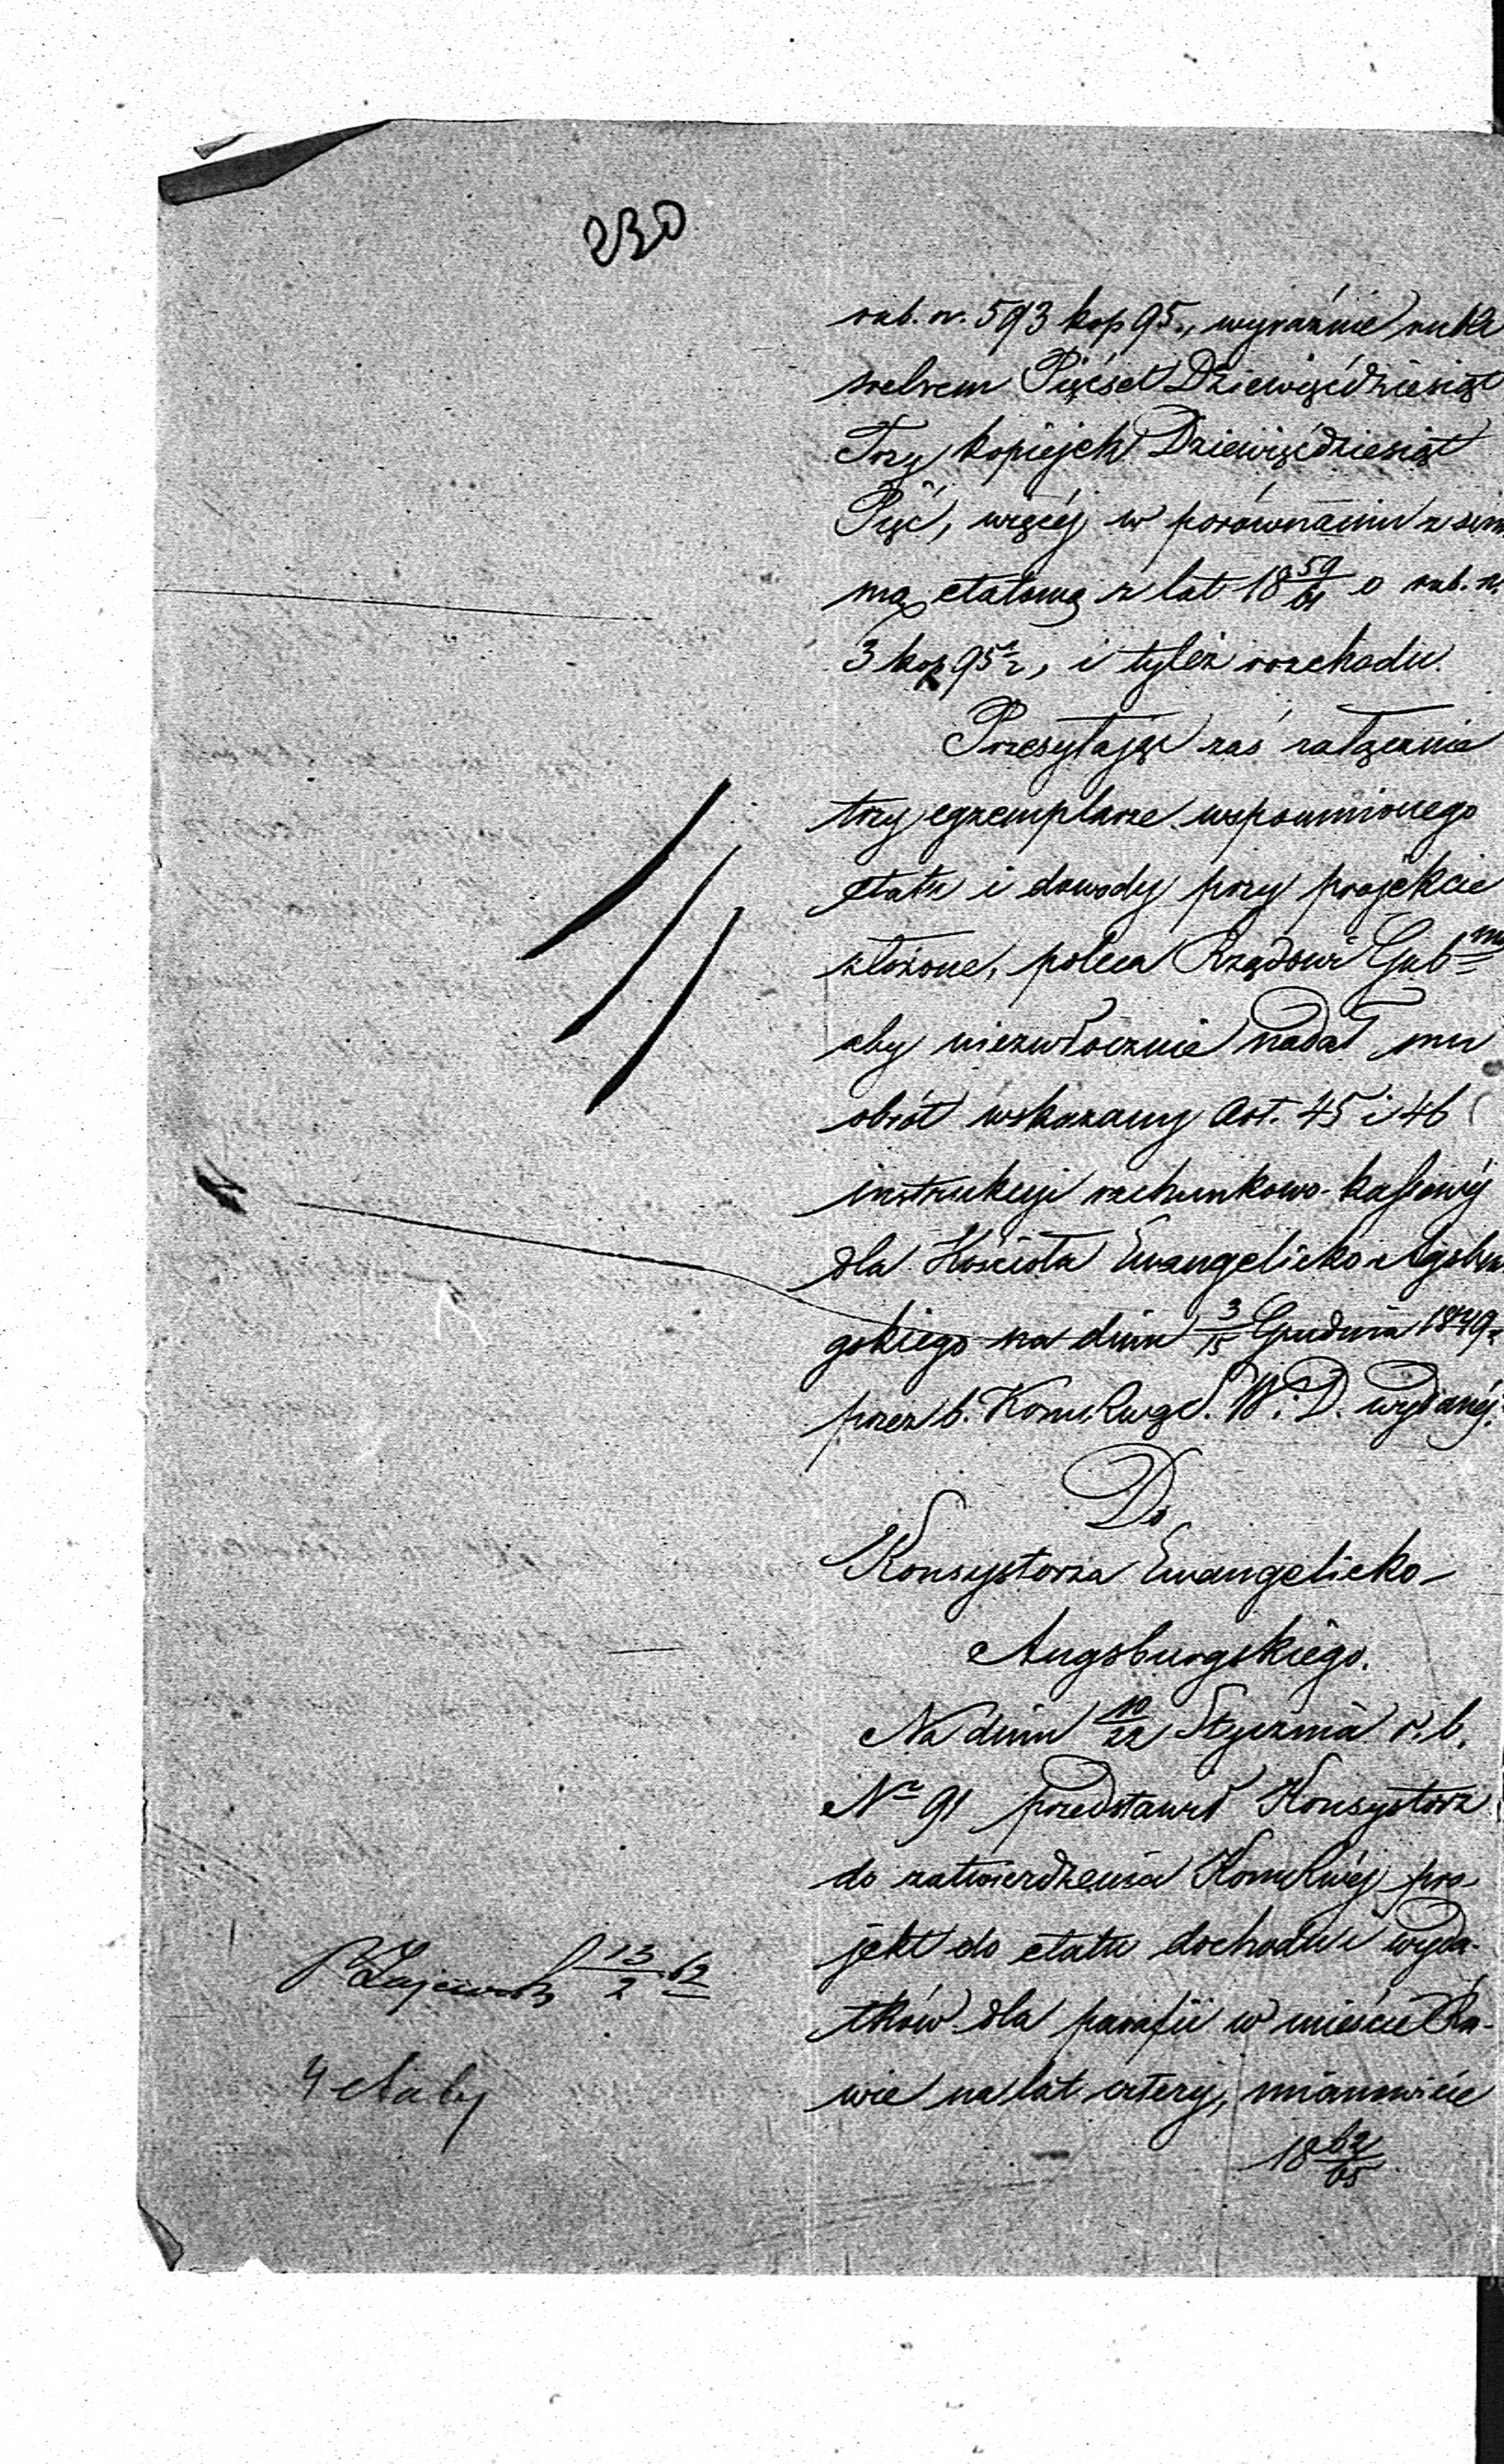 230
rub. sr. 593 kop 95., wyraźnie rubli
srebrem Pięćset Dziewięćdziesiąt
Trzy kopiejek Dziewięćdziesiąt
Pięć, więcéj w porównaniu z sum
mą etatową z lat 18 59/61 o rub. sr.
3 kop 95 1/2, i tyleż rozchodu.
Przesyłając zaś załącznie
trzy egzemplarze wspomnionego
etatu i dowody przy projekcie
złożone, poleca Rządowi Gub=mu
aby niezwłocznie nadał mu
obrót wskazany Art. 45 i 46
instrukcyi rachunkowo-kassowéj
dla Kościoła Ewangelicko-Augsbur
gskiego na dniu 3/15 Grudnia 1849 r.
przez b. Kom. Rząd. W. i D. wydanéj.
Do
Konsystorza Ewangelicko-
Augsburgskiego.
Na dniu 10/22 Stycznia r. b.
Nr 91 przedstawił Konsystorz
do zatwierdzenia Kom. Rwéj pro
jekt do etatu dochodu i wyda-
tków dla parafii w mieście Ra-
wie na lat cztery, mianowicie
18 62/65
13/2 62
4 etaty